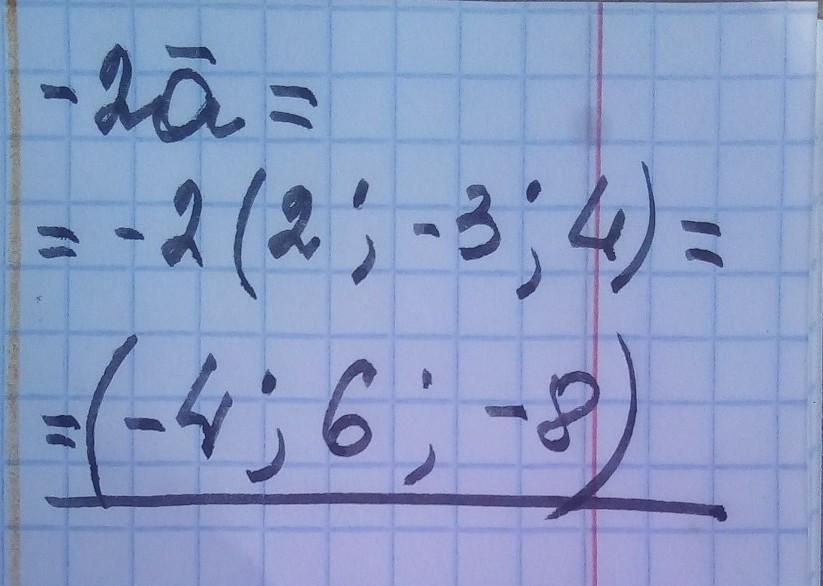 -2ā =
= -2(2; -3; 4) =
= (-4; 6; -8)